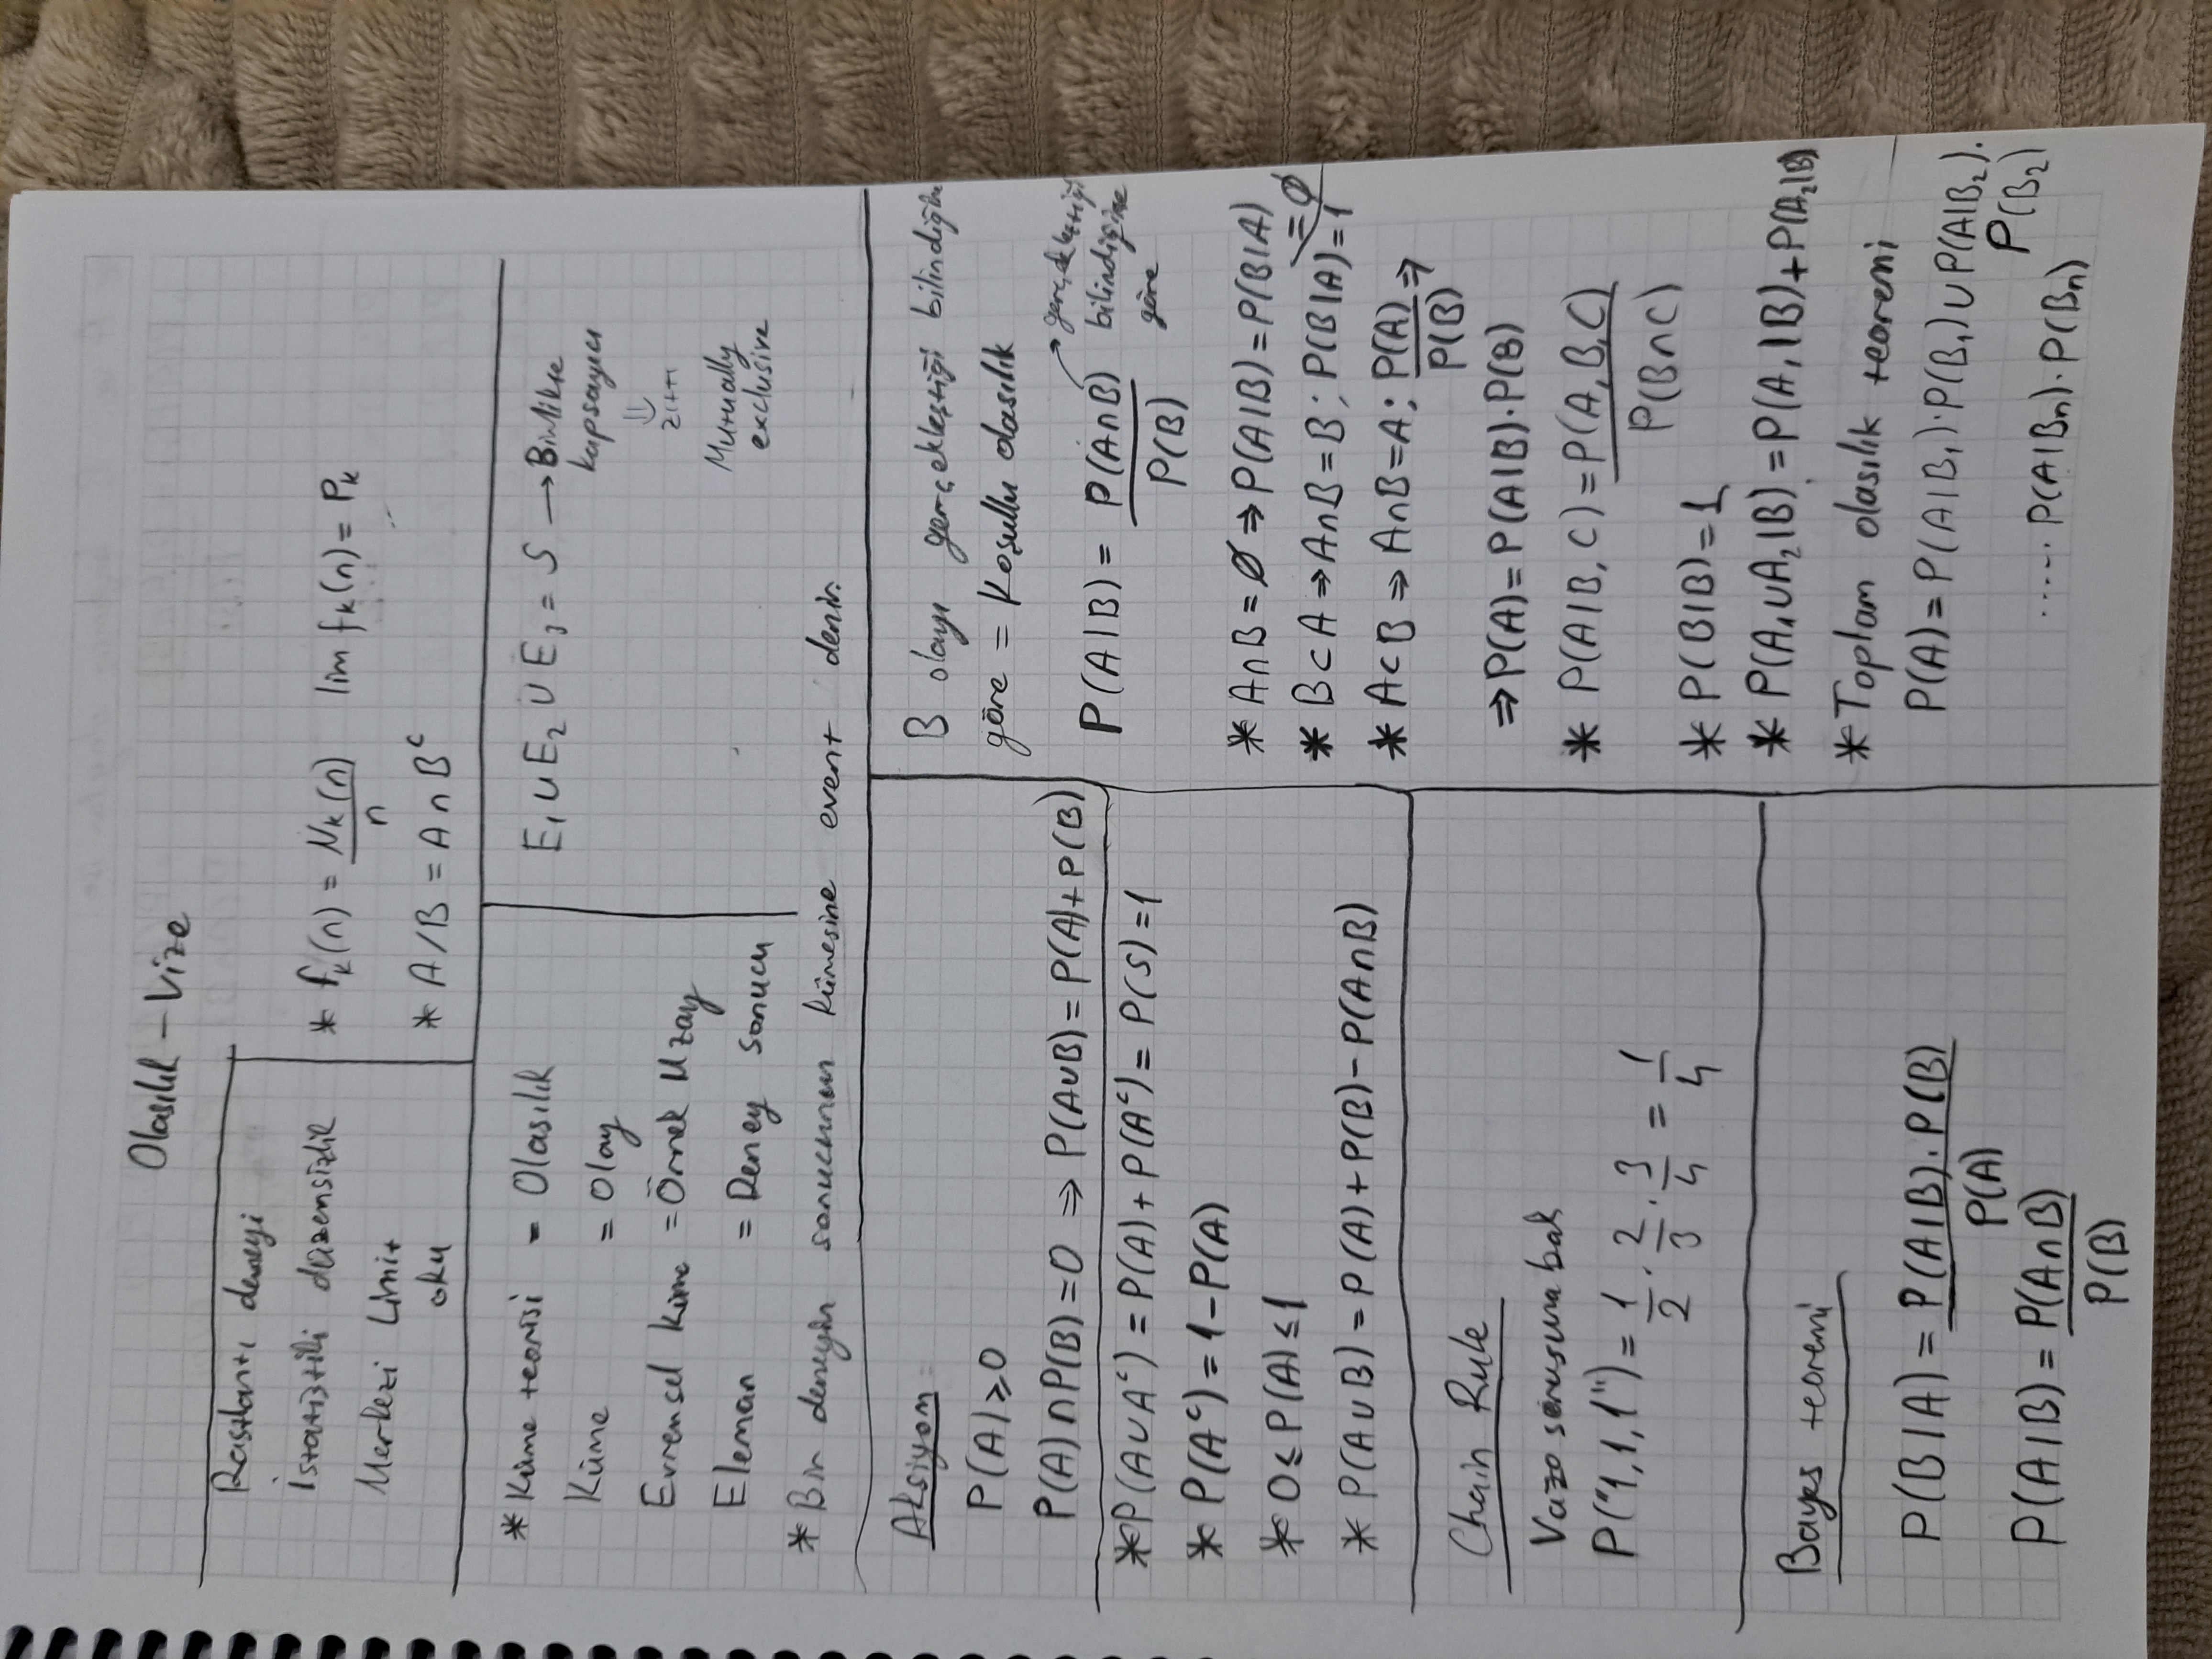 Olasılık - Vize
Rastlantı deneyi
İstatiztiki düzensizlik
Merkezi Limit
oku
* fₖ(n) = Nₖ(n)/n   lim fₖ(n) = Pₖ
* A/B = A∩Bᶜ
* Küme teorisi = Olasılık
Küme = Olay
Evrensel küme = Örnek Uzay
Eleman = Deney sonucu
E₁∪E₂∪E₃ = S → Birlikte
kapsayıcı
⇓
zıttı
Mutually
exclusive
* Bir deneyin sonucunun kümesine event denir.
Aksiyom
P(A)≥0
P(A)∩P(B)=0 ⇒ P(A∪B) = P(A)+P(B)
*P(A∪Aᶜ) = P(A)+P(Aᶜ) = P(S)=1
* P(Aᶜ)=1-P(A)
* 0≤P(A)≤1
* P(A∪B) = P(A)+P(B)-P(A∩B)
Chain Rule
Vazo sorusuna bak
P("1,1,1") = 1/2 · 2/3 · 3/4 = 1/4
Bayes teoremi
P(B|A) = P(A|B).P(B)/P(A)
P(A|B) = P(A∩B)/P(B)
B olayı gerçekleştiği bilindiğine
göre = Koşullu olasılık
P(A|B) = P(A∩B)/P(B) → gerçekleştiği
bilindiğine
göre
* A∩B=∅ ⇒ P(A|B)=P(B|A)
=∅
* B⊂A ⇒ A∩B=B; P(B|A)=1
* A⊂B ⇒ A∩B=A; P(A)/P(B) ⇒
⇒ P(A)=P(A|B)·P(B)
* P(A|B,C) = P(A,B,C)/P(B∩C)
* P(B|B)=1
* P(A₁∪A₂|B) = P(A₁|B)+P(A₂|B)
* Toplam olasılık teoremi
P(A) = P(A|B₁)·P(B₁)∪P(A|B₂).
P(B₂)
...... P(A|Bₙ).P(Bₙ)